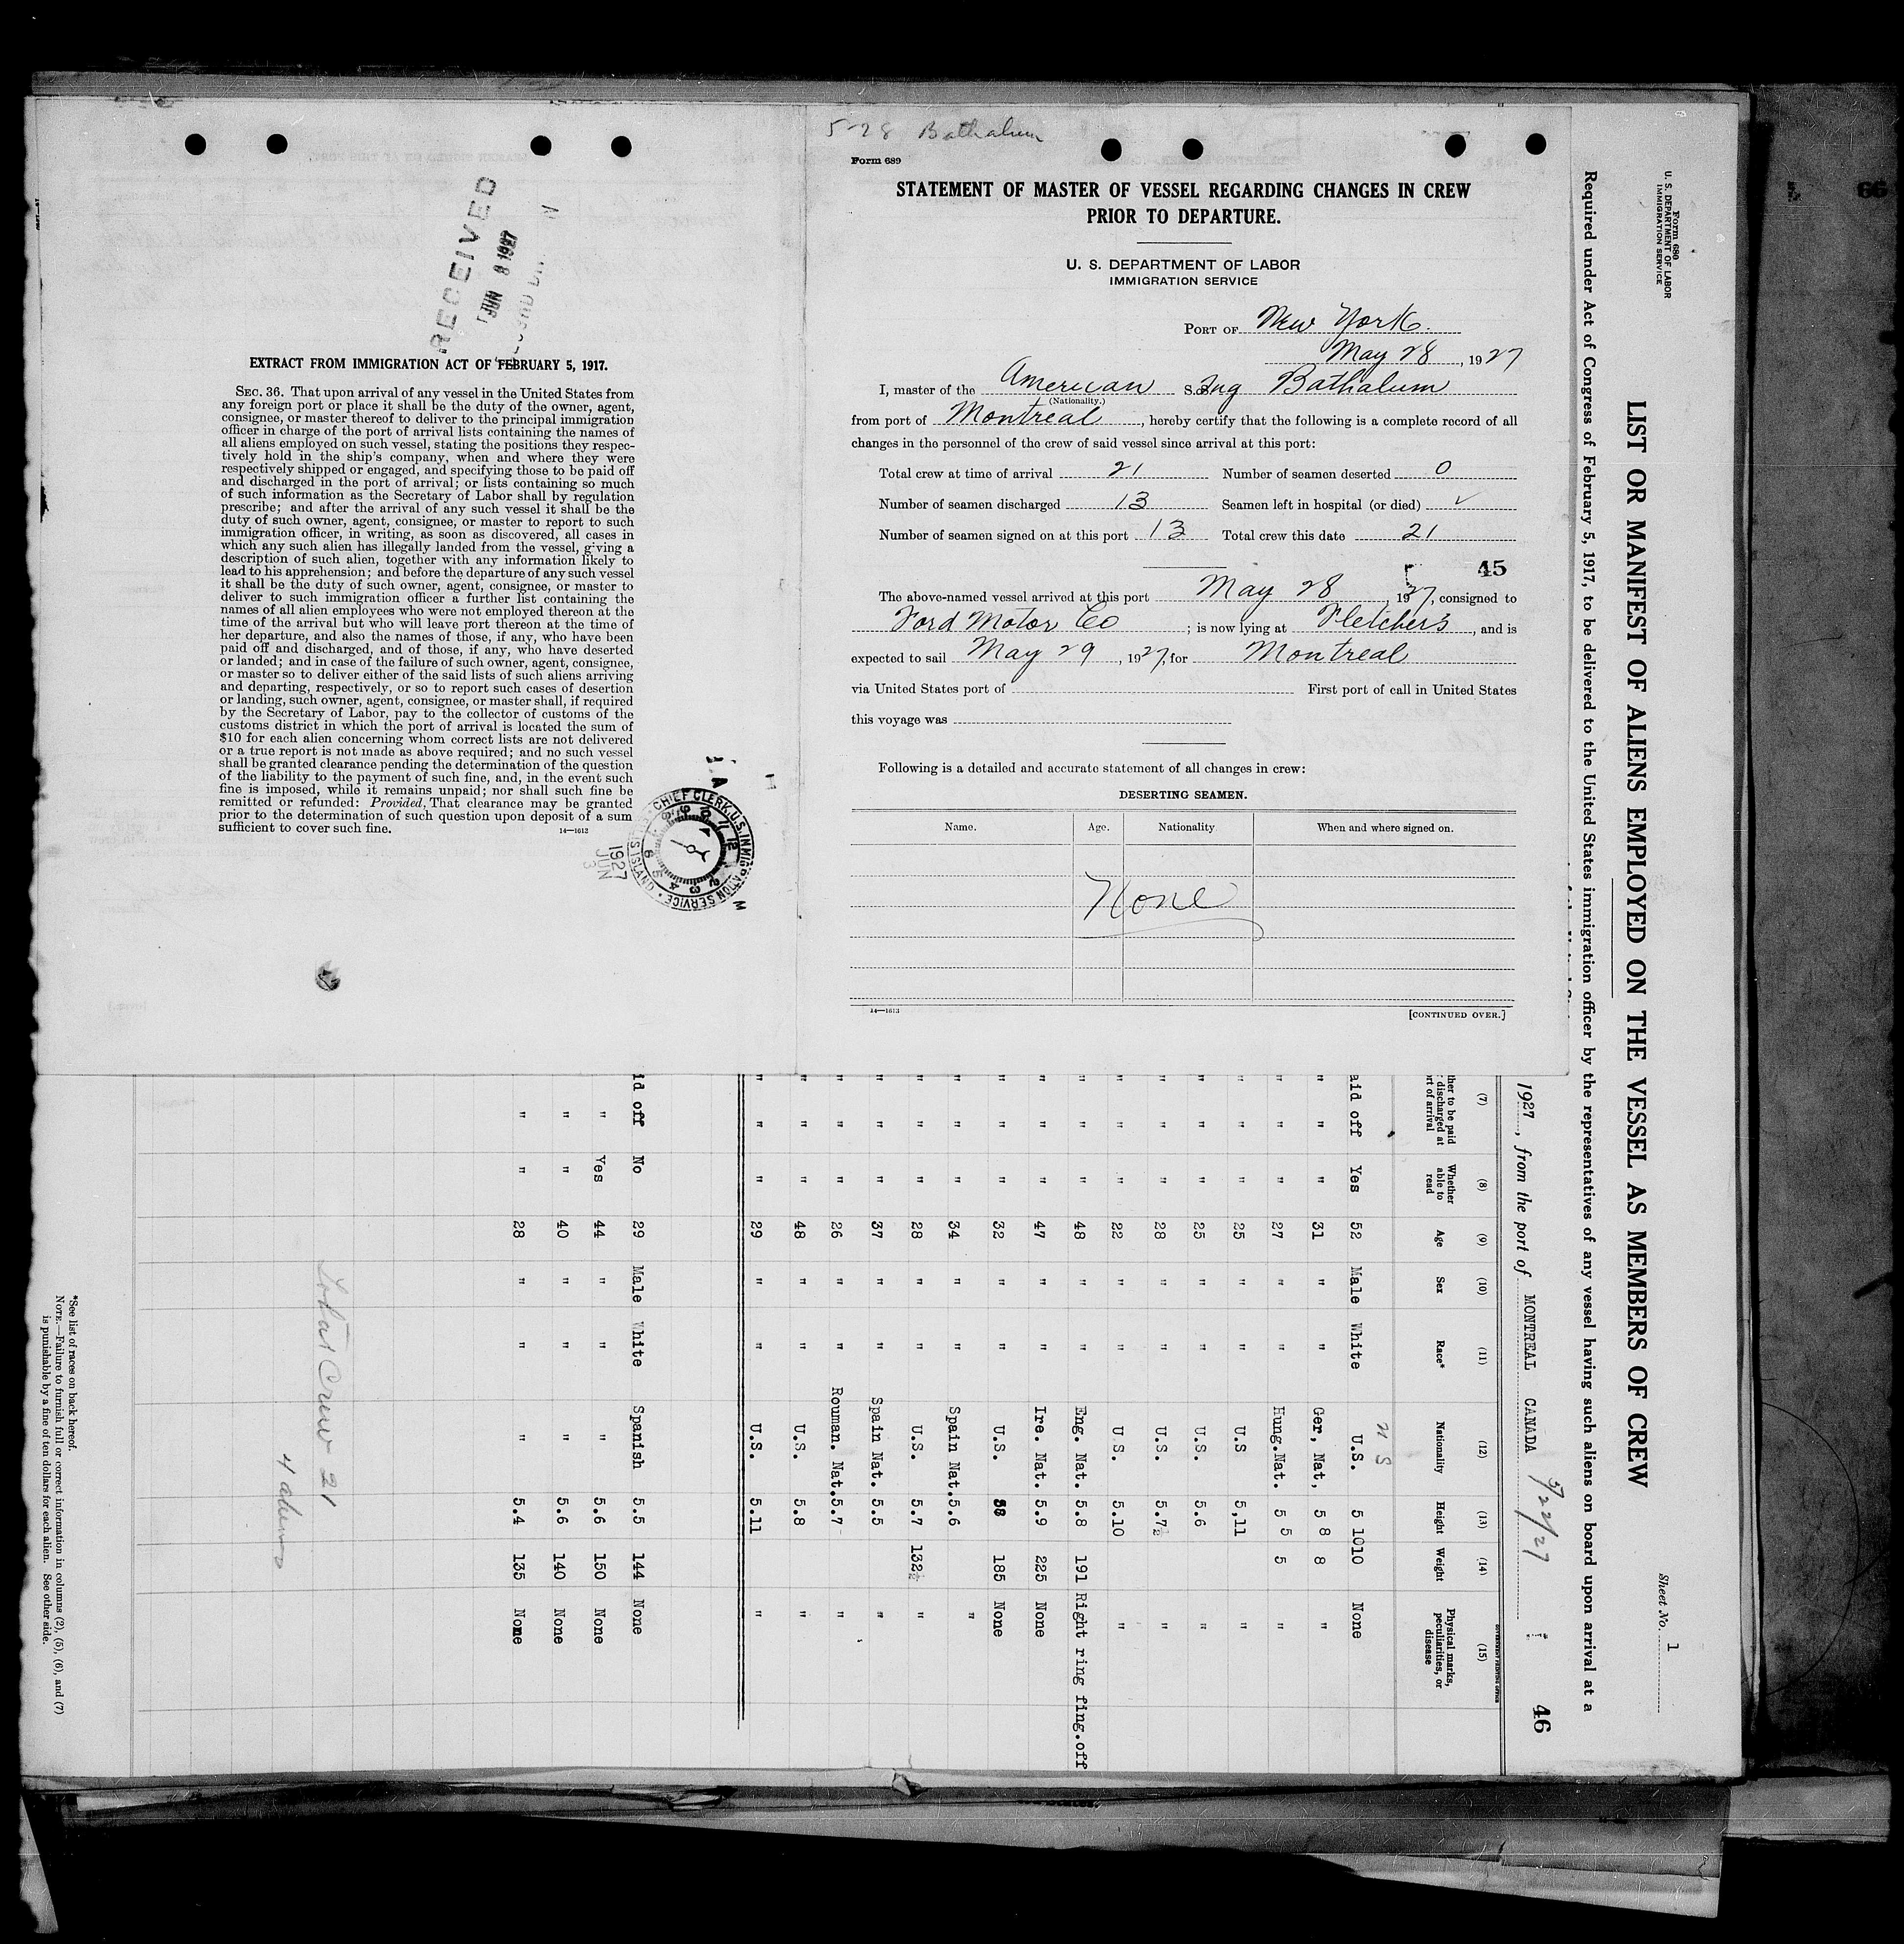 5-28 Bathalum
Form 689
STATEMENT OF MASTER OF VESSEL REGARDING CHANGES IN CREW
PRIOR TO DEPARTURE.
U. S. DEPARTMENT OF LABOR
IMMIGRATION SERVICE
PORT OF New York.
May 28, 1927
I, master of the American S. Tug Bathalum
(Nationality.)
from port of Montreal, hereby certify that the following is a complete record of all
changes in the personnel of the crew of said vessel since arrival at this port:
Total crew at time of arrival 21 Number of seamen deserted 0
Number of seamen discharged 13 Seamen left in hospital (or died) ✓
Number of seamen signed on at this port 13 Total crew this date 21
45
The above-named vessel arrived at this port May 28, 1927, consigned to
Ford Motor Co; is now lying at Fletchers, and is
expected to sail May 29, 1927, for Montreal
via United States port of First port of call in United States
this voyage was
Following is a detailed and accurate statement of all changes in crew:
DESERTING SEAMEN.
Name. Age. Nationality When and where signed on.
None
14—1613 [CONTINUED OVER.]
RECEIVED
JUN 8 1927
EXTRACT FROM IMMIGRATION ACT OF FEBRUARY 5, 1917.
SEC. 36. That upon arrival of any vessel in the United States from
any foreign port or place it shall be the duty of the owner, agent,
consignee, or master thereof to deliver to the principal immigration
officer in charge of the port of arrival lists containing the names of
all aliens employed on such vessel, stating the positions they respec-
tively hold in the ship's company, when and where they were
respectively shipped or engaged, and specifying those to be paid off
and discharged in the port of arrival; or lists containing so much
of such information as the Secretary of Labor shall by regulation
prescribe; and after the arrival of any such vessel it shall be the
duty of such owner, agent, consignee, or master to report to such
immigration officer, in writing, as soon as discovered, all cases in
which any such alien has illegally landed from the vessel, giving a
description of such alien, together with any information likely to
lead to his apprehension; and before the departure of any such vessel
it shall be the duty of such owner, agent, consignee, or master to
deliver to such immigration officer a further list containing the
names of all alien employees who were not employed thereon at the
time of the arrival but who will leave port thereon at the time of
her departure, and also the names of those, if any, who have been
paid off and discharged, and of those, if any, who have deserted
or landed; and in case of the failure of such owner, agent, consignee,
or master so to deliver either of the said lists of such aliens arriving
and departing, respectively, or so to report such cases of desertion
or landing, such owner, agent, consignee, or master shall, if required
by the Secretary of Labor, pay to the collector of customs of the
customs district in which the port of arrival is located the sum of
$10 for each alien concerning whom correct lists are not delivered
or a true report is not made as above required; and no such vessel
shall be granted clearance pending the determination of the question
of the liability to the payment of such fine, and, in the event such
fine is imposed, while it remains unpaid; nor shall such fine be
remitted or refunded: Provided, That clearance may be granted
prior to the determination of such question upon deposit of a sum
sufficient to cover such fine. 14—1613
CHIEF CLERK, U.S. IMMIGRATION SERVICE
1927 JUN 3
66
Form 680
U. S. DEPARTMENT OF LABOR
IMMIGRATION SERVICE
Sheet No. 1
LIST OR MANIFEST OF ALIENS EMPLOYED ON THE VESSEL AS MEMBERS OF CREW
Required under Act of Congress of February 5, 1917, to be delivered to the United States immigration officer by the representatives of any vessel having such aliens on board upon arrival at a
1927, from the port of MONTREAL CANADA 5/22/27
46
(7) (8) (9) (10) (11) (12) (13) (14) (15)
Whether able to read Age Sex Race* Nationality Height Weight Physical marks, peculiarities, or disease
U S
aid off Yes 52 Male White U.S. 5 1010 None
" " " 31 " " Ger, Nat, 5 8 8 "
" " " 27 " " Hung.Nat. 5 5 5 "
" " " 25 " " U.S 5,11 "
" " " 25 " " U.S. 5.6 "
" " " 28 " " U.S. 5.7½ "
" " " 22 " " U.S. 5.10 "
" " " 48 " " Eng. Nat. 5.8 191 Right ring fing.off
" " " 47 " " Ire. Nat. 5.9 225 None
" " " 32 " " U.S. 185 None
" " " 34 " " Spain Nat.5.6 "
" " " 28 " " U.S. 5.7 132½ "
" " " 37 " " Spain Nat. 5.5 "
" " " 26 " " Rouman. Nat.5.7 "
" " " 48 " " U.S. 5.8 "
" " " 29 " " U.S. 5.11 "
id off No 29 Male White Spanish 5.5 144 None
" Yes 44 " " " 5.6 150 None
" " 40 " " " 5.6 140 None
" " 28 " " " 5.4 135 None
Total Crew 21
4 aliens
*See list of races on back hereof.
NOTE.—Failure to furnish full or correct information in columns (2), (5), (6), and (7)
is punishable by a fine of ten dollars for each alien. See other side.